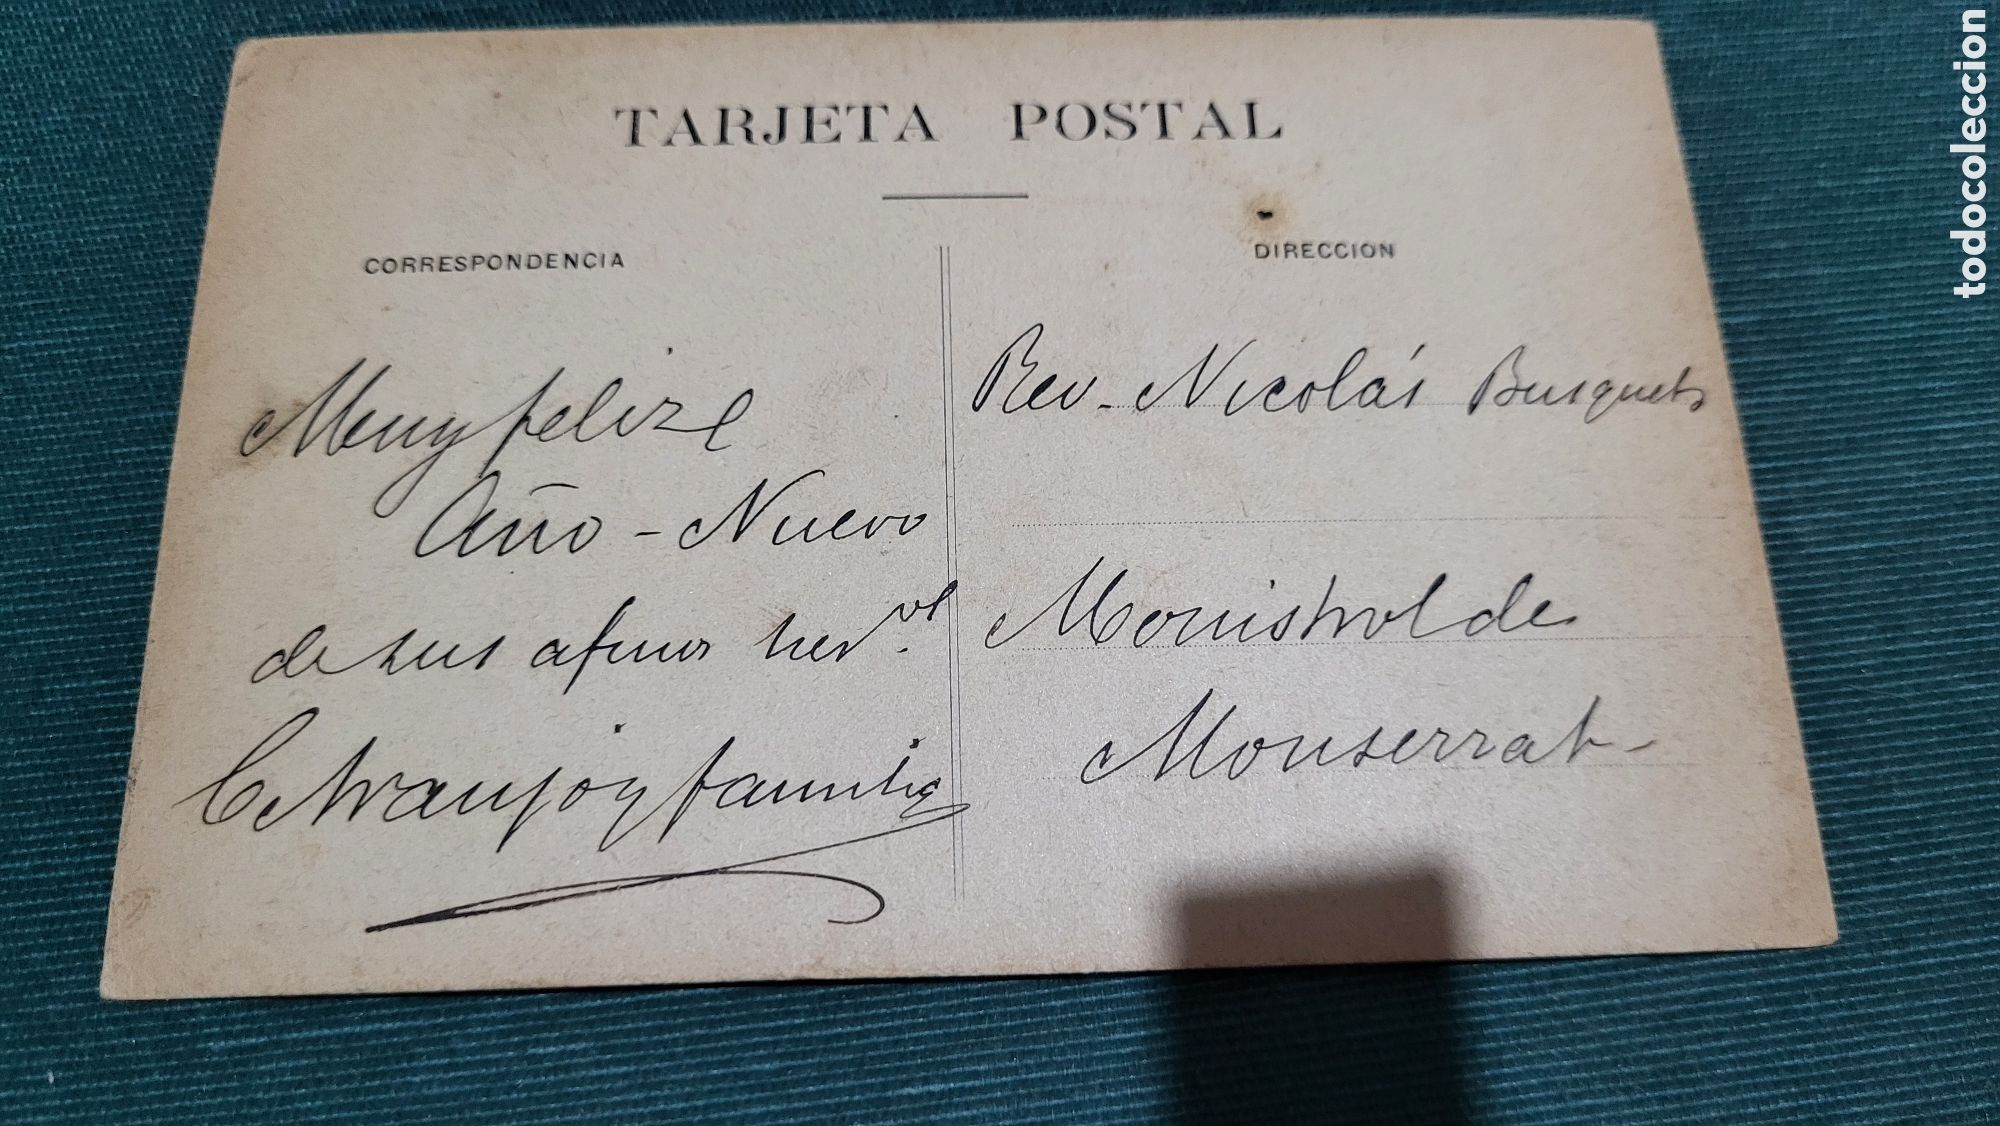 TARJETA POSTAL
CORRESPONDENCIA
DIRECCION
Muy felize
Año-Nuevo
de sus afmos
y familia
Rev. Nicolás Busquets
Monistrol de
Monserrat-
todocoleccion